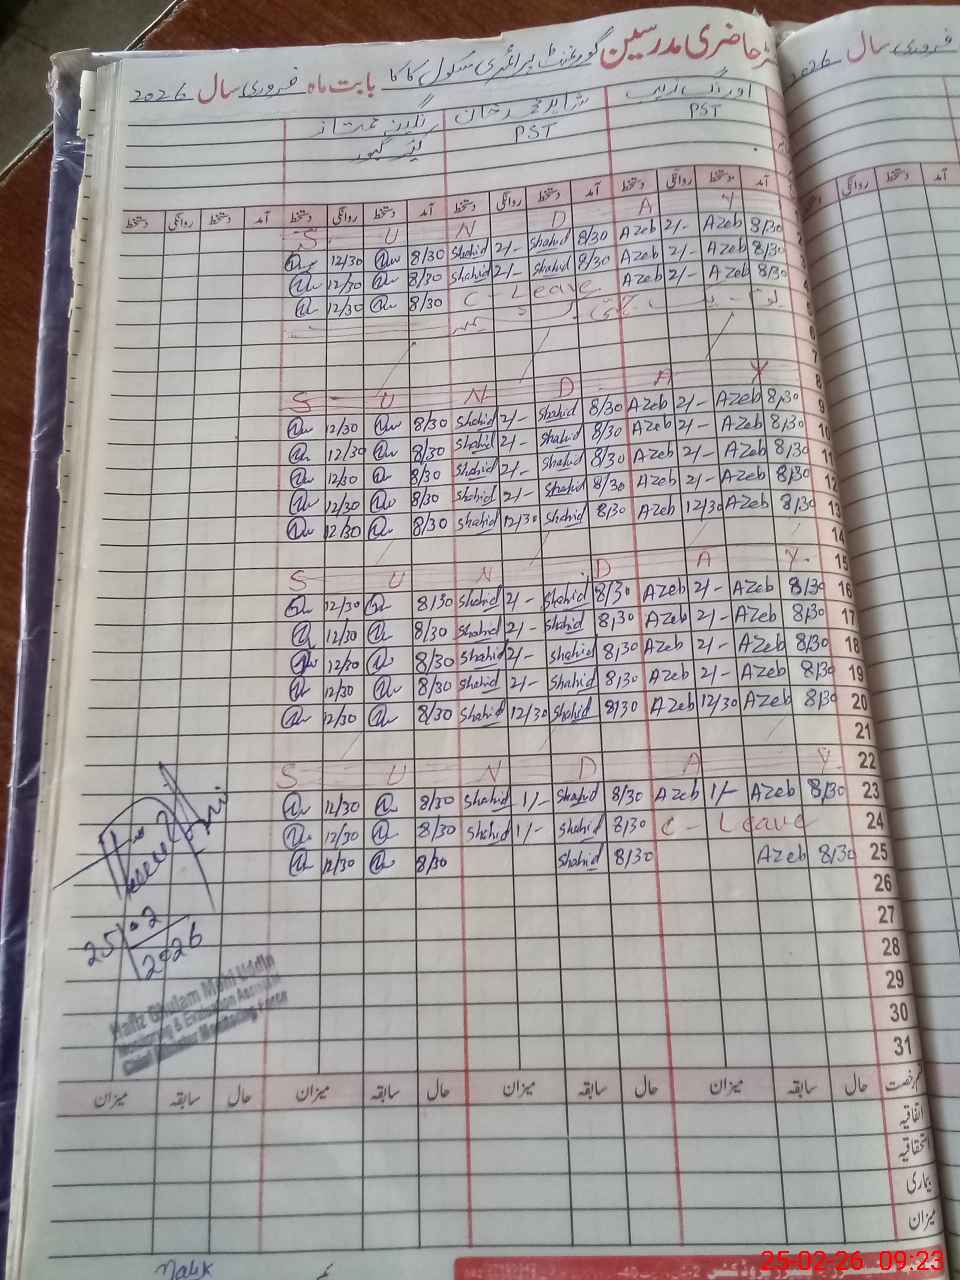 رجسٹر حاضری مدرسین گورنمنٹ پرائمری سکول کاکا بابت ماہ فروری سال 2026
فروری سال 2026
اورنگ زیب
PST
شاہد محمد خان
PST
نگین ممتاز
آمد دستخط روانگی دستخط آمد دستخط روانگی دستخط آمد دستخط روانگی دستخط آمد دستخط روانگی دستخط
S U N D A Y
12/30 8/30 Shahid 2/- Shahid 8/30 Azeb 2/- Azeb 8/30
12/30 8/30 Shahid 2/- Shahid 8/30 Azeb 2/- Azeb 8/30
12/30 8/30 C - Leave Azeb 2/- Azeb 8/30
7
S U N D A Y 8
12/30 8/30 Shahid 2/- Shahid 8/30 Azeb 2/- Azeb 8/30 9
12/30 8/30 Shahid 2/- Shahid 8/30 Azeb 2/- Azeb 8/30 10
12/30 8/30 Shahid 2/- Shahid 8/30 Azeb 2/- Azeb 8/30 11
12/30 8/30 Shahid 2/- Shahid 8/30 Azeb 2/- Azeb 8/30 12
12/30 8/30 Shahid 12/30 Shahid 8/30 Azeb 12/30 Azeb 8/30 13
14
S U N D A Y 15
12/30 8/30 Shahid 2/- Shahid 8/30 Azeb 2/- Azeb 8/30 16
12/30 8/30 Shahid 2/- Shahid 8/30 Azeb 2/- Azeb 8/30 17
12/30 8/30 Shahid 2/- Shahid 8/30 Azeb 2/- Azeb 8/30 18
12/30 8/30 Shahid 2/- Shahid 8/30 Azeb 2/- Azeb 8/30 19
12/30 8/30 Shahid 12/30 Shahid 8/30 Azeb 12/30 Azeb 8/30 20
21
S U N D A Y 22
12/30 8/30 Shahid 1/- Shahid 8/30 Azeb 1/- Azeb 8/30 23
12/30 8/30 Shahid 1/- Shahid 8/30 C - Leave 24
12/30 8/30 Shahid 8/30 Azeb 8/30 25
26
27
28
29
30
31
25/02/2026
Hafiz Ghulam Mohi Uddin
Monitoring & Evaluation Assistant
Chief Minister Monitoring Force
حال سابقہ میزان حال سابقہ میزان حال سابقہ میزان
اتفاقیہ
استحقاقیہ
بیماری
میزان
Malik
25-02-26 09:23